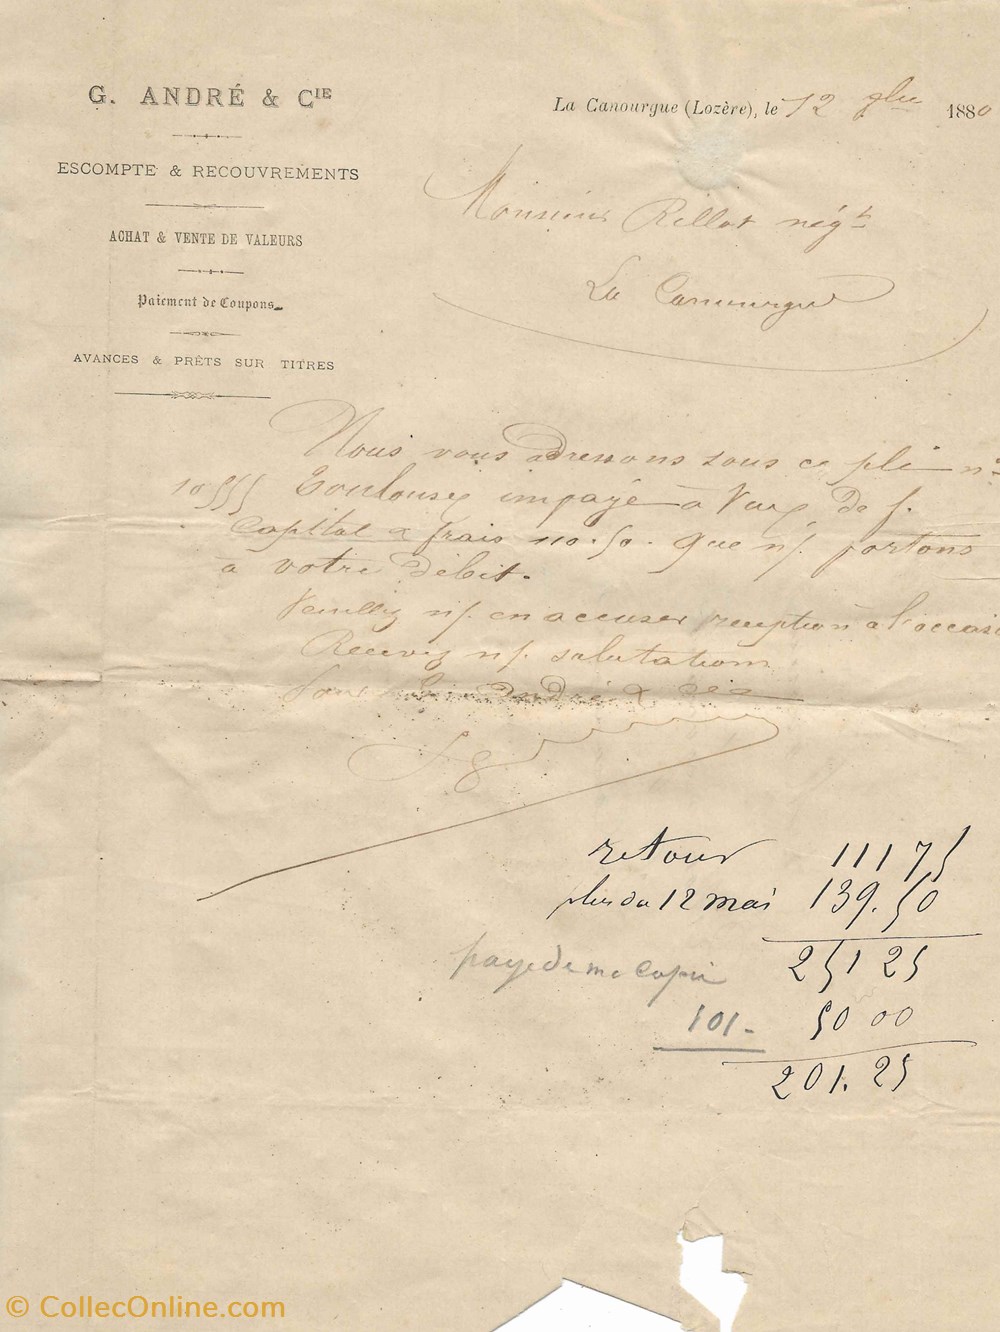 G. ANDRÉ & CIE
ESCOMPTE & RECOUVREMENTS
ACHAT & VENTE DE VALEURS
Paiement de Coupons
AVANCES & PRÊTS SUR TITRES
La Canourgue (Lozère), le 12 9bre 1880
Monsieur Rillot négt
La Canourgue
Nous vous adressons sous ce pli no
10555 Toulouse impayé à Vous de f.
Capital & frais 110.50. que n/. portons
à votre débit.
Veuillez n/. en accuser reception à l'occasi
Recevez n/. salutations
Pour G. André & Cie
retour 111 75
plus du 12 mai 139.50
251 25
paye de me
101- 50 00
201.25
© CollecOnline.com